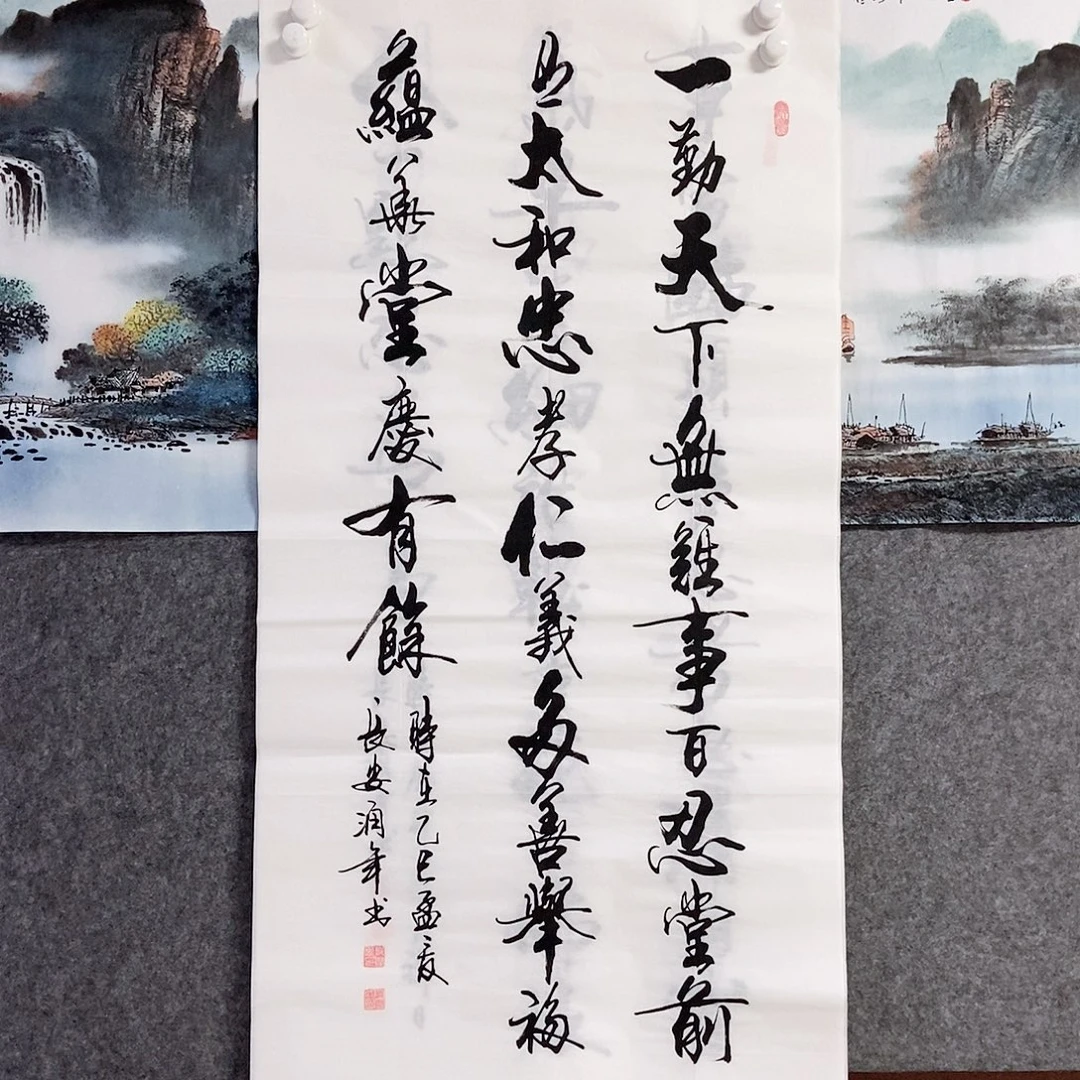 一勤天下無難事百忍堂前
是太和忠孝仁義多善舉福
蘊華堂慶有餘
時在乙巳孟夏
長安潤年书